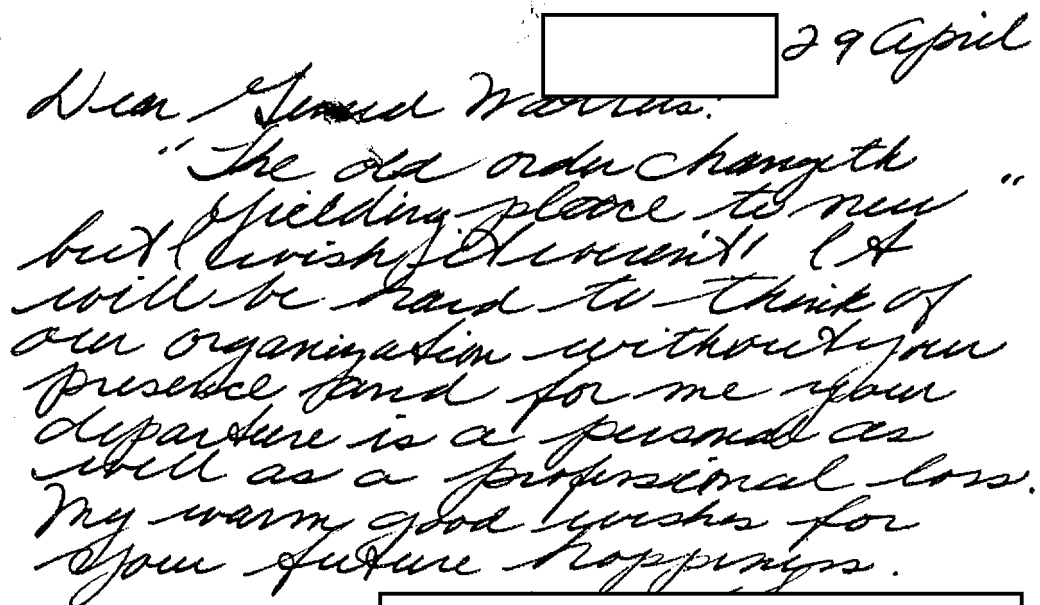 29 April
Dear General Walters:
"The old order changeth
yielding place to new"
but I wish it weren't! It
will be hard to think of
our organization without your
presence and for me your
departure is a personal as
well as a professional loss.
My warm good wishes for
your future